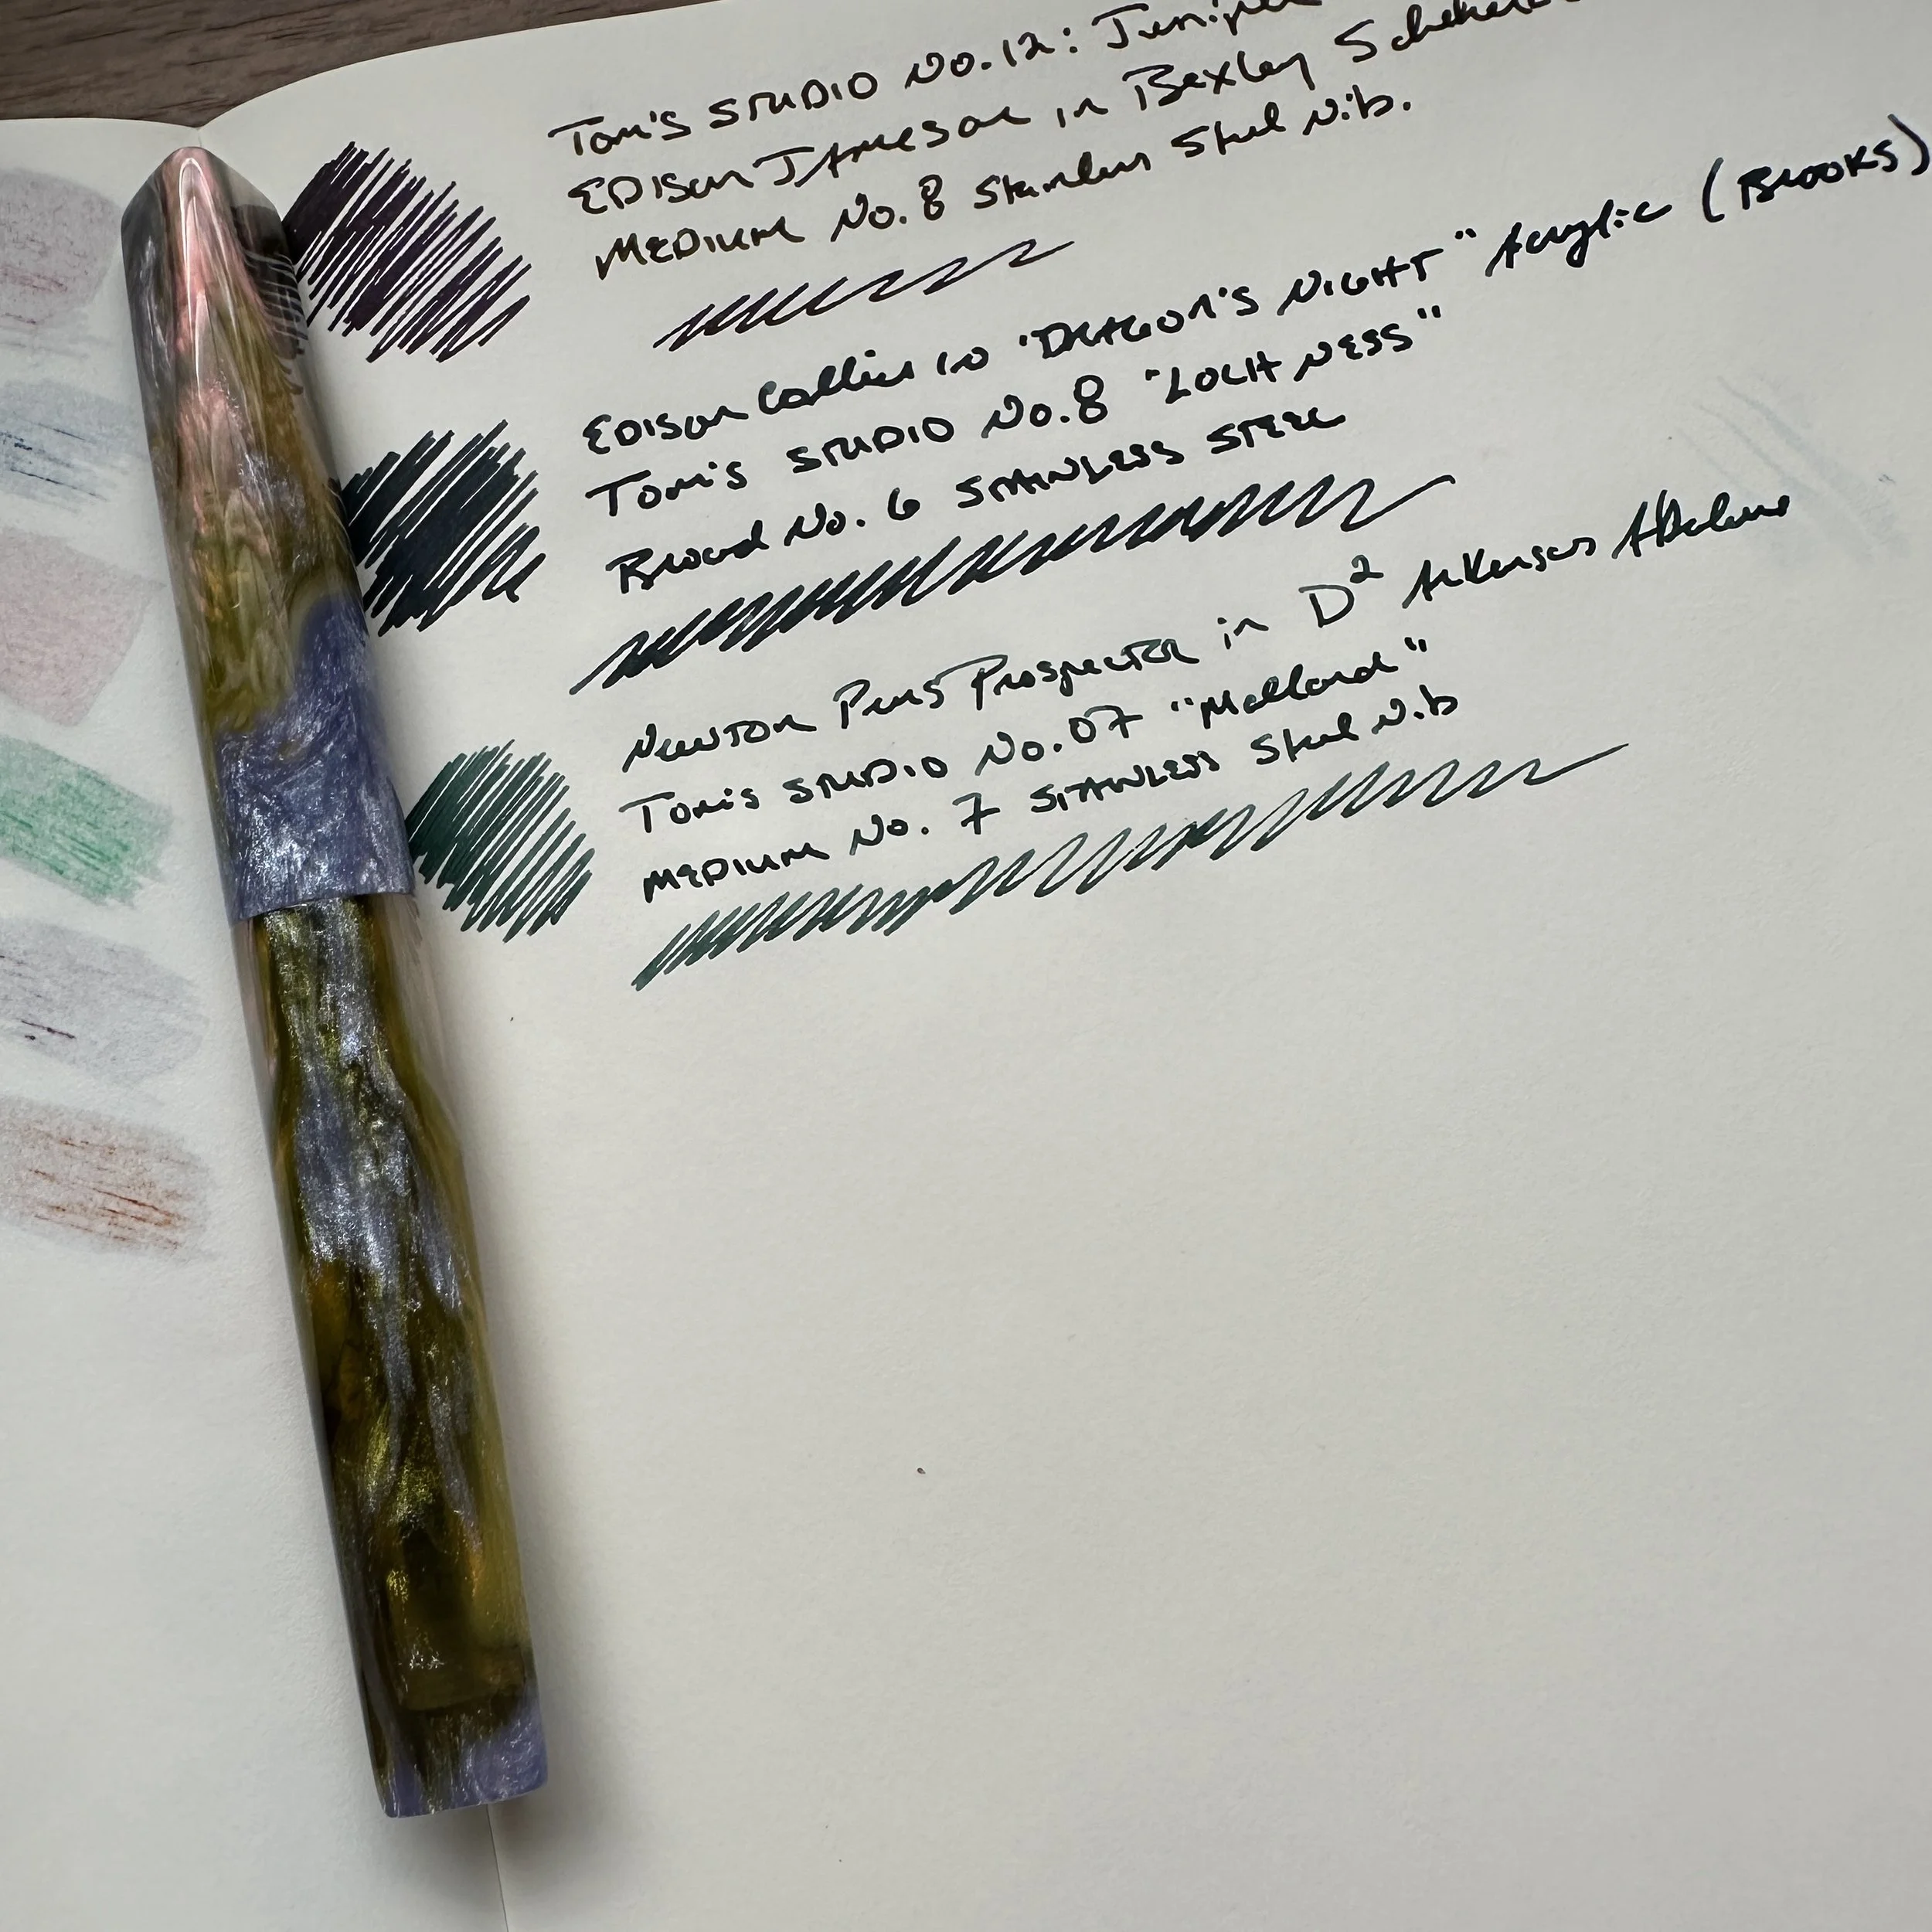 Tom's STUDIO No.12: Juniper
EDISON JAMESON in Bexley
MEDIUM No. 8 Stainless Steel Nib.
EDISON Collier in "DRAGON'S NIGHT" Acrylic (BROOKS)
Tom's STUDIO No.8 "LOCH NESS"
Broad No. 6 STAINLESS STEEL
NEWTON Pens Prospector in D² Arkansas Abalone
Tom's STUDIO No. 07 "Mallard"
MEDIUM No. 7 STAINLESS Steel Nib